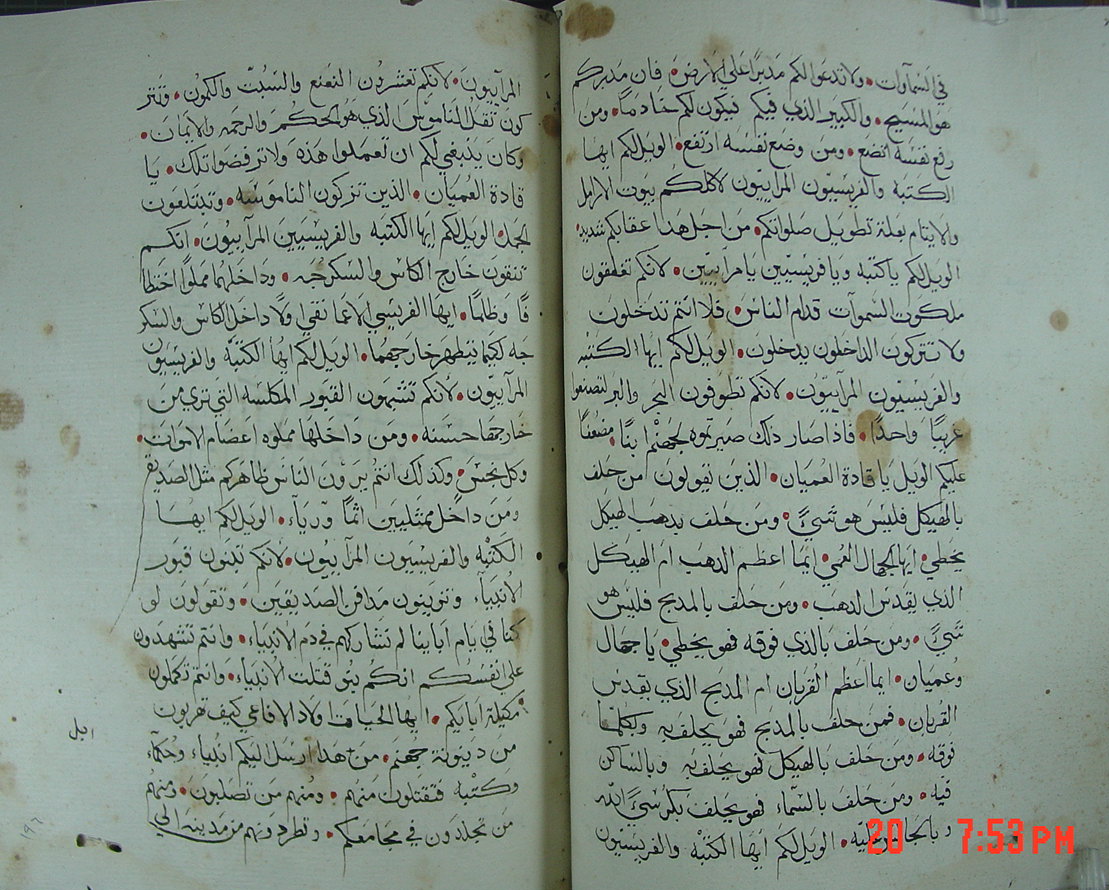 في السماوات • ولا تدعوا لكم مدبرا على الارض • فان مدبركم
هو المسيح • والكبير الذي فيكم فيكون لكم خادما • ومن
رفع نفسه اتضع • ومن وضع نفسه ارتفع • الويل لكم ايها
الكتبه والفريسيون المراييون لاكلكم بيوت الارامل
والايتام بعلة تطويل صلواتكم • من اجل هدا عقابكم شديد •
الويل لكم يا كتبه ويا فريسيين يا مراييين • لانكم تغلقون
ملكوت السموآت قدام الناس • فلا انتم تدخلون
ولا تتركون الداخلون يدخلون • الويل لكم ايها الكتبه
والفريسيون المرآييون • لانكم تطوفون البحر والبر لتصنعوا
غريبا واحدًا • فاذا صار ذلك صيرتموه لجهنم ابنًا مضعفًا
عليكم الويل يا قادة العميان • الذين تقولون من حلف
بالهيكل فليس هو شيءً • ومن حلف بدهب الهيكل
يخطي • ايها الجهال العمي • ايما اعظم الدهب ام الهيكل
الذي يقدس الدهب • ومن حلف بالمدبح فليس هو
شيءً • ومن حلف بالذي فوقه فهو يخطي • يا جهال
وعميان • ايما اعظم القربان ام المدبح الذي يقدس
القربان • فمن حلف بالمدبح فهو يحلف به ولكلما
فوقه • ومن حلف بالهيكل فهو يحلف به وبالساكن
فيه • ومن حلف بالسماء فهو يحلف بكرسيّ الله
وبالجالس عليه • الويل لكم ايها الكتبه والفريسيون
20 7:53 PM
المرآييون • لانكم تعشرون النعنع والسبت والكمون • وتتر
كون تقل الناموس الذي هو الحكم والرحمه والايمان •
وكان ينبغي لكم ان تعملوا هذه ولا ترفضوا تلك • يا
قادة العميان • الذين تتركون الناموسه • وتبتلعون
الجمل • الويل لكم ايها الكتبه والفريسيين المراييون • انكم
تنقون خارج الكاس والسكرجه • وداخلهما مملوا اختطا
فًا وظلمًا • ايها الفريسي الاعما نقي اولًا داخل الكاس والسكر
جه لكيما يتطهر خارجهما • الويل لكم ايها الكتبه والفريسيون
المرآييون • لانكم تشبهون القبور المكلسه التي تري من
خارجها حسنه • ومن داخلها مملوه اعضام الاموات •
وكل نجس • وكذلك انتم يرون الناس ظاهركم مثل الصديق
ومن داخل ممتليين اثمًا وريآء • الويل لكم ايها
الكتبه والفريسيون المرآييون • لانكم تبنون قبور
الانبيآء وتزينون مدافن الصديقين • وتقولون لو
كنا في يام اباينا لم نشاركهم في دم الانبياء • وانتم تشهدون
علي انفسكم انكم بنو قتلت الانبياء • وانتم تكملون
مكيلة ابايكم • ايها الحيات اولاد الافاعي كيف تهربون
من دينونة جهنم • من هدا ارسل اليكم انبياء وحكمآء
وكتبه فتقتلون منهم • ومنهم من تصلبون • ومنهم
من تجلدون في مجامعكم • وتطردونهم من مدينه الي